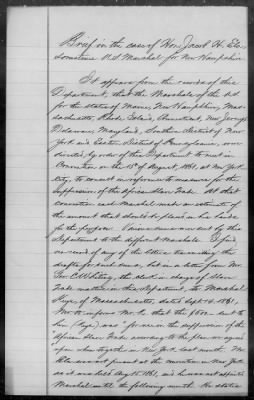 Brief in the case of Hon. Jacob H. Ela
sometime U.S. Marshal for New Hampshire
It appears from the records of this
Department, that the Marshals of the U.S
for the states of Maine, New Hampshire, Mas-
sachusetts, Rhode Island, Connecticut, New Jersey
Delaware, Maryland, Southern District of New
York and Eastern District of Pennsylvania, were
directed by order of this Department to meet in
Convention on the 15th of August, 1861, at New York
City, to consult in reference to measures for the
suppression of the African Slave Trade. At that
convention each Marshal made an estimate of
the amount that should be placed in his hands
for the purpose. Various sums were sent by this
Department to the different Marshals. I find
no record of any of the letters transmitting the
drafts for such sums, but in a letter from Mr.
Geo. C. Whiting, the clerk in charge of Slave
Trade matters in this Department, to Marshal
Keyes, of Massachusetts, dated Sept 4, 1861,
Mr. W. informs Mr. K. that the $500 sent to
him (Keyes) was "for use in the suppression of the
African Slave Trade according to the plan so agreed
"upon when together in New York last month. Mr.
Ela was not present at the convention in New York
as it was held Aug. 15, 1861, and he was not appointed
Marshal until the following month. He states